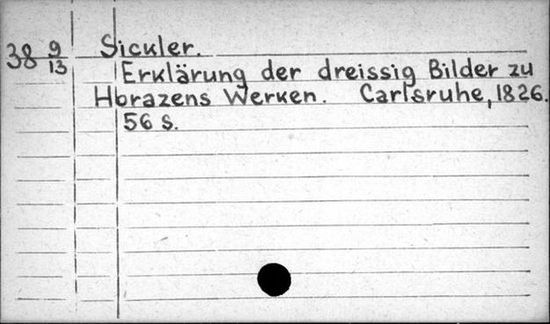 38 9/13 Sickler.
Erklärung der dreissig Bilder zu
Horazens Werken. Carlsruhe, 1826.
56 S.